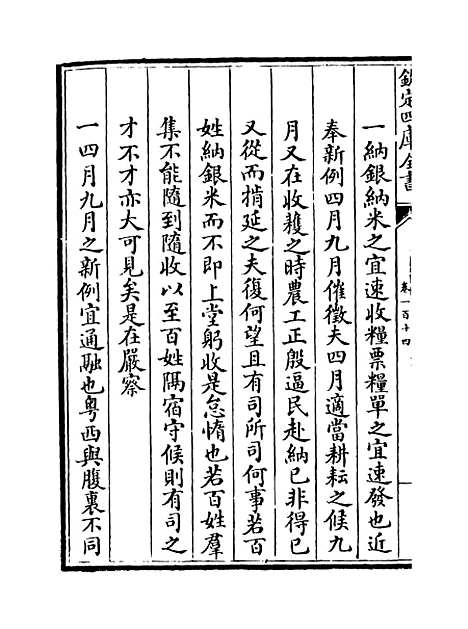 欽定四庫全書
卷一百十四
一納銀納米之宜速收糧票糧單之宜速發也近
奉新例四月九月催徵夫四月適當耕耘之候九
月又在收穫之時農工正殷逼民赴納已非得已
又從而捎延之夫復何望且有司所司何事若百
姓納銀米而不即上堂躬收是怠惰也若百姓羣
集不能隨到隨收以至百姓隔宿守候則有司之
才不才亦大可見矣是在嚴察
一四月九月之新例宜通融也粵西與腹裏不同